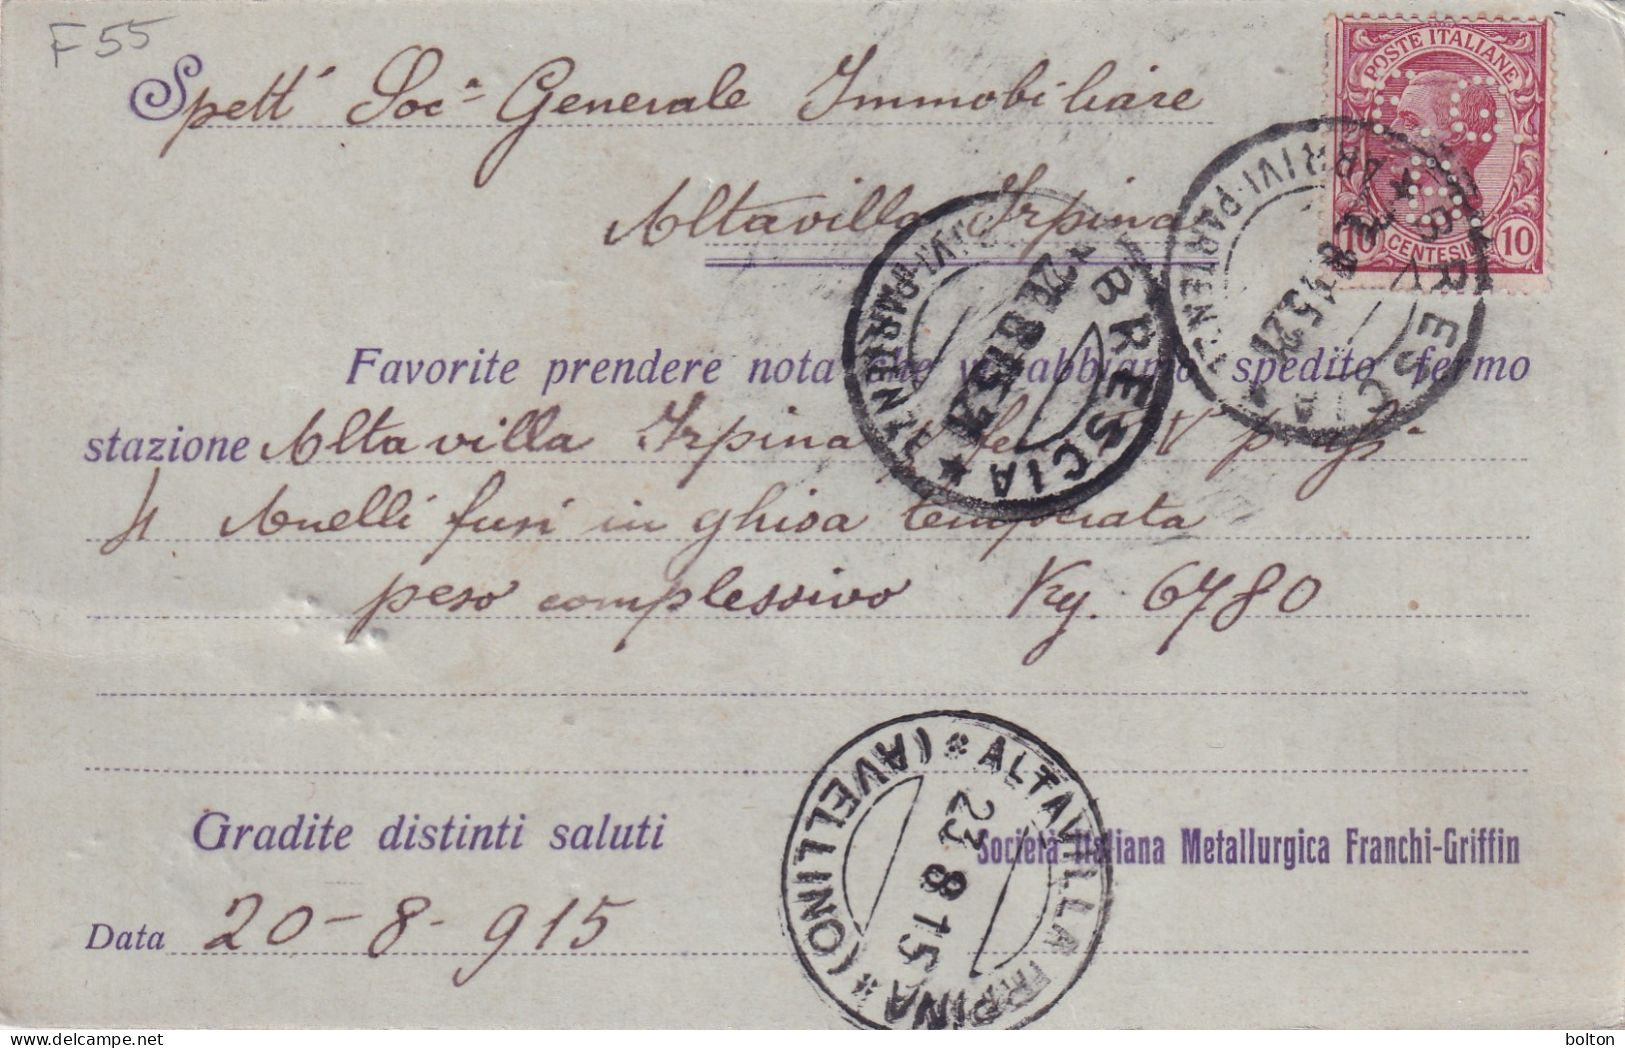 F 55
POSTE ITALIANE
10 CENTESIMI 10
Spett. Soc.a Generale Immobiliare
Altavilla Irpina
BRESCIA
ARRIVI-PARTENZE
BRESCIA
ARRIVI-PARTENZE
Favorite prendere nota che vi abbiamo spedito fermo
stazione Altavilla Irpina
4 Anelli fusi in ghisa temperata
peso complessivo Kg. 6780
ALTAVILLA IRPINA * (AVELLINO) *
23 8 15
Gradite distinti saluti
Società Italiana Metallurgica Franchi-Griffin
Data 20-8-915
delcampe.net
bolton